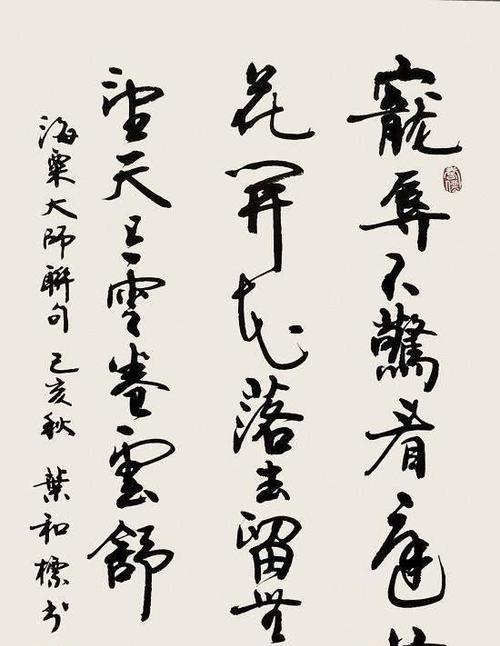 寵辱不驚看庭
花開花落去留無
望天上雲卷雲舒
海粟大師聯句 己亥秋 葉和標书